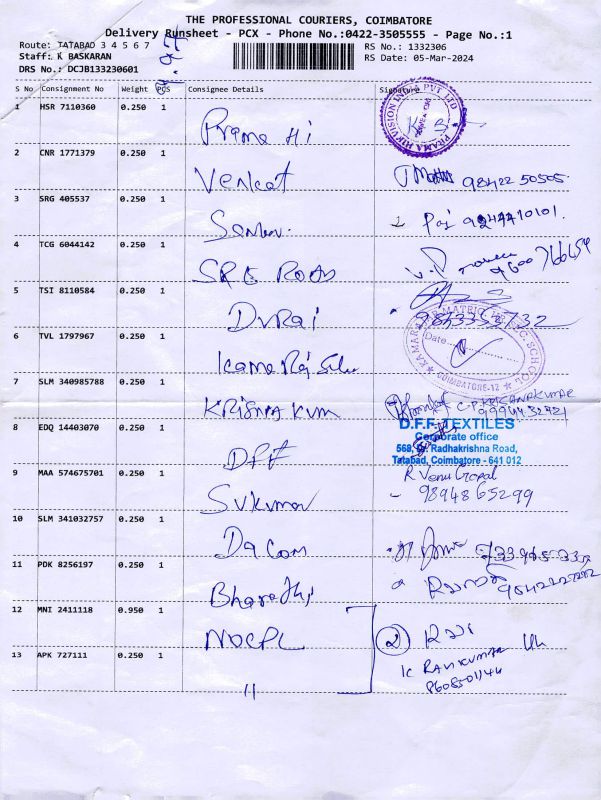 THE PROFESSIONAL COURIERS, COIMBATORE
Delivery Runsheet - PCX - Phone No.:0422-3505555 - Page No.:1
Route: TATABAD 3 4 5 6 7
RS No.: 1332306
Staff: K BASKARAN
RS Date: 05-Mar-2024
DRS No.: DCJB133230601
S No Consignment No Weight PCS Consignee Details Signature
1 HSR 7110360 0.250 1 Prama Hi
PRAMA HIKVISION INDIA PVT LTD
2 CNR 1771379 0.250 1 Venkat 98422 50505
3 SRG 405537 0.250 1 Raj 9244410101.
4 TCG 6044142 0.250 1 SRG Roads 9600766454
5 TSI 8110584 0.250 1 Durai 9843352732
6 TVL 1797967 0.250 1 Kamaraj
KAMARAJ MATRIC HR SEC SCHOOL
Date
COIMBATORE-12
7 SLM 340985788 0.250 1 KRISNA KUM C.P.KRISANAKUMAR
9994432921
8 EDQ 14403070 0.250 1 DFF
D.F.F. TEXTILES
Corporate office
568, Dr. Radhakrishna Road,
Tatabad, Coimbatore - 641 012
9 MAA 574675701 0.250 1 Sukumar R Venu Gopal
- 9894865299
10 SLM 341032757 0.250 1 Dacom
11 PDK 8256197 0.250 1 Bharathi
12 MNI 2411118 0.950 1 NOCPL 2 Ravi
13 APK 727111 0.250 1 11 K RAVIKUMAR
8608501146